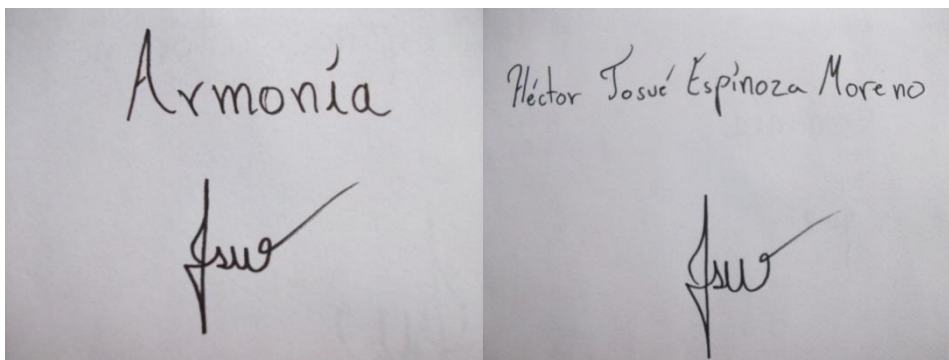 Armonía
Héctor Josué Espinoza Moreno